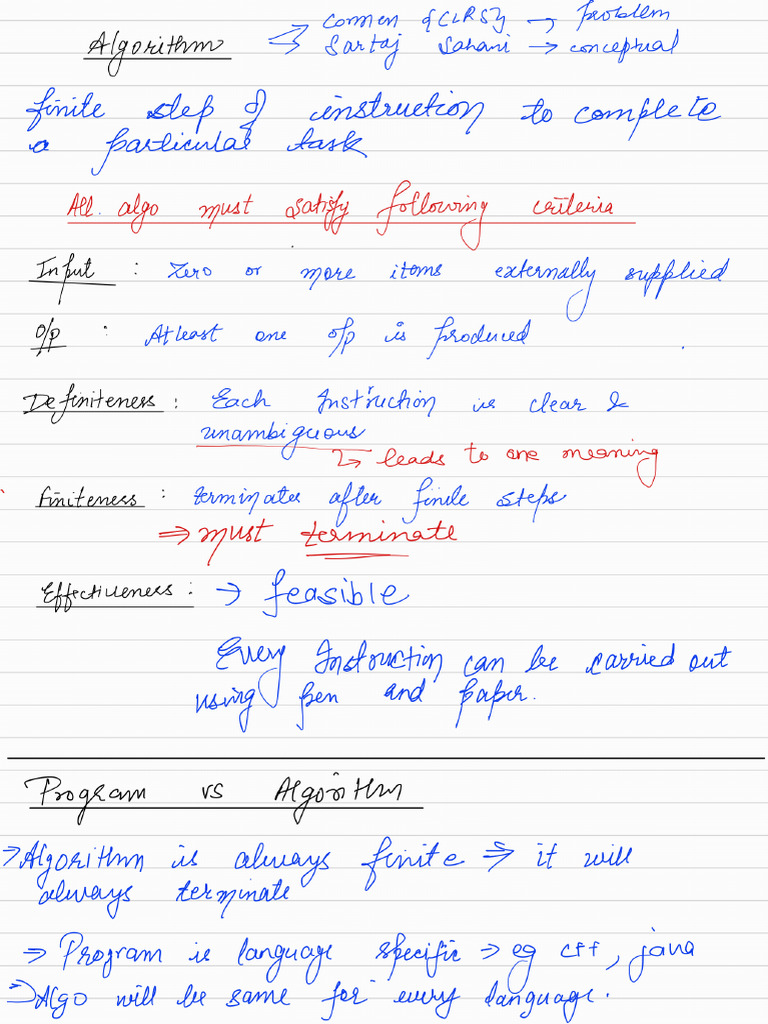 Algorithm → Cormen {CLRS} → problem
Sartaj Sahani → conceptual
finite step of instruction to complete
a particular task
All. algo must satisfy following criteria
Input : Zero or more items externally supplied
O/p : Atleast one o/p is produced
Definiteness : Each Instruction is clear &
unambiguous
↳ leads to one meaning
finiteness : terminates after finite steps
⇒ must terminate
Effectiveness : → feasible
Every Instruction can be carried out
using pen and paper.
Program vs Algorithm
⇒ Algorithm is always finite ⇒ it will
always terminate
⇒ Program is language specific ⇒ eg C++, java
⇒ Algo will be same for every language.